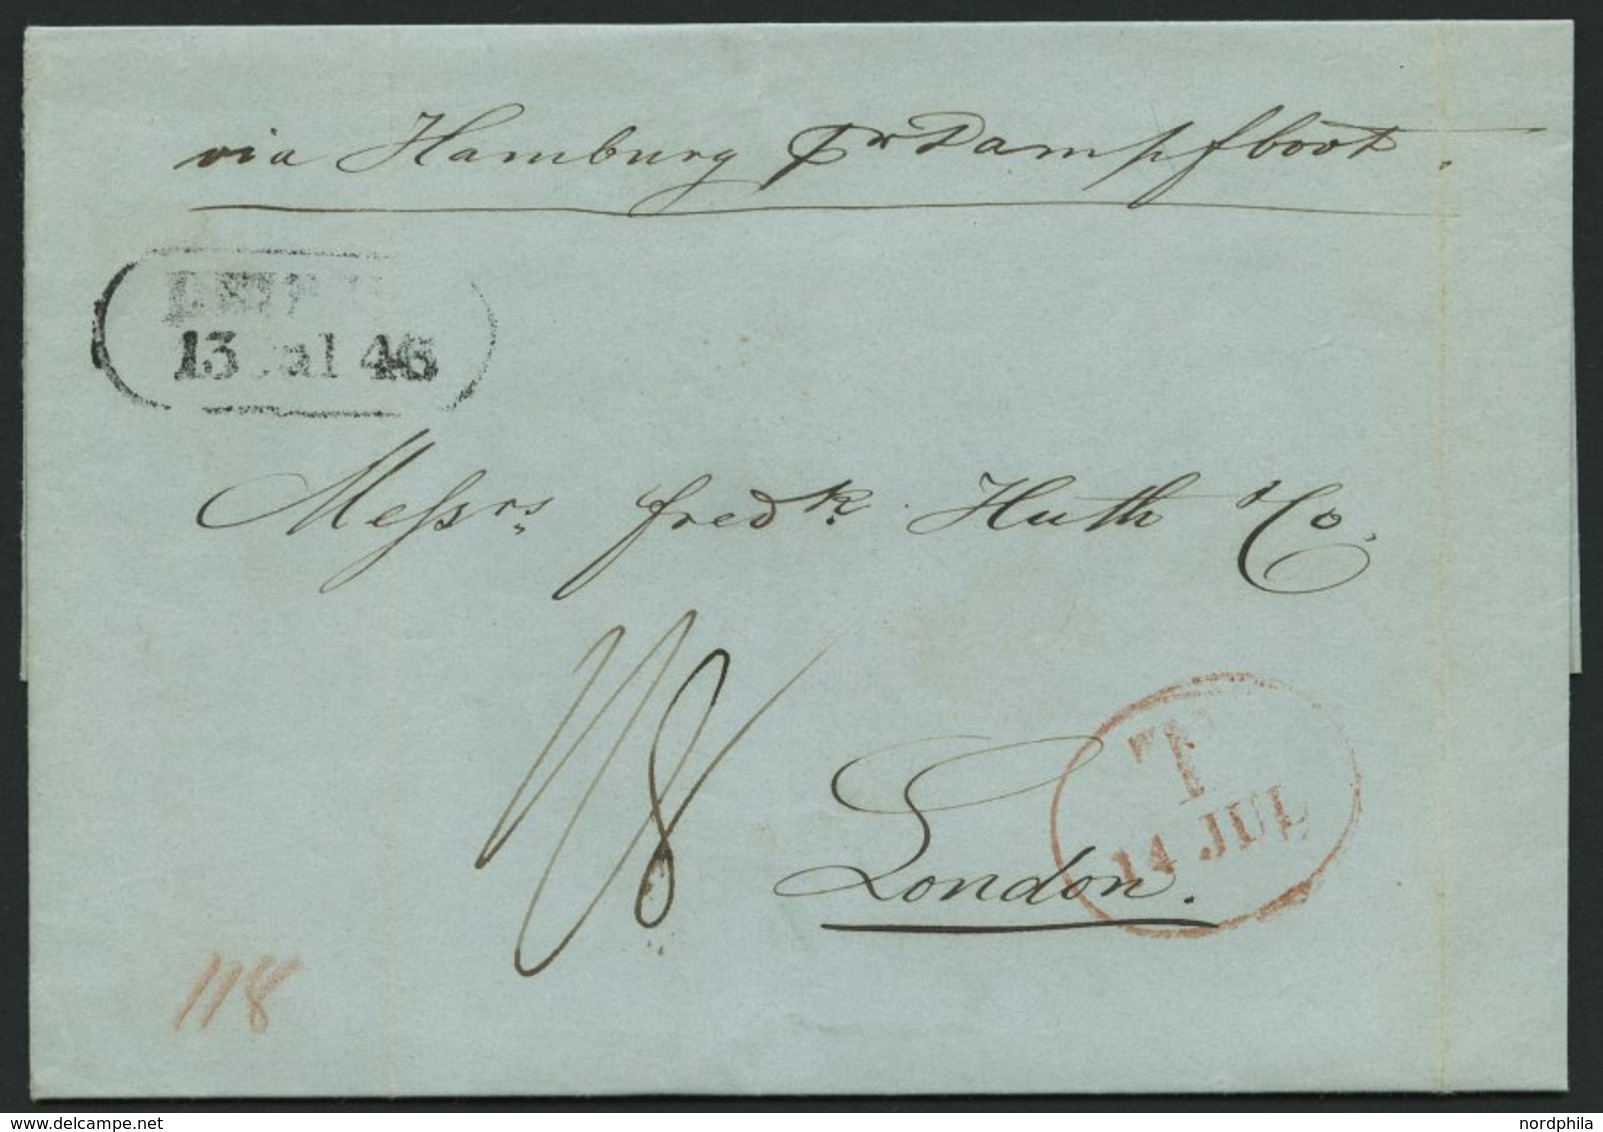 via Hamburg pr Dampfboot.
13 Jul 46
Messrs fredk. Huth & Co.
1/8
T
14 JUL
London.
118
delcampe.net
nordphila